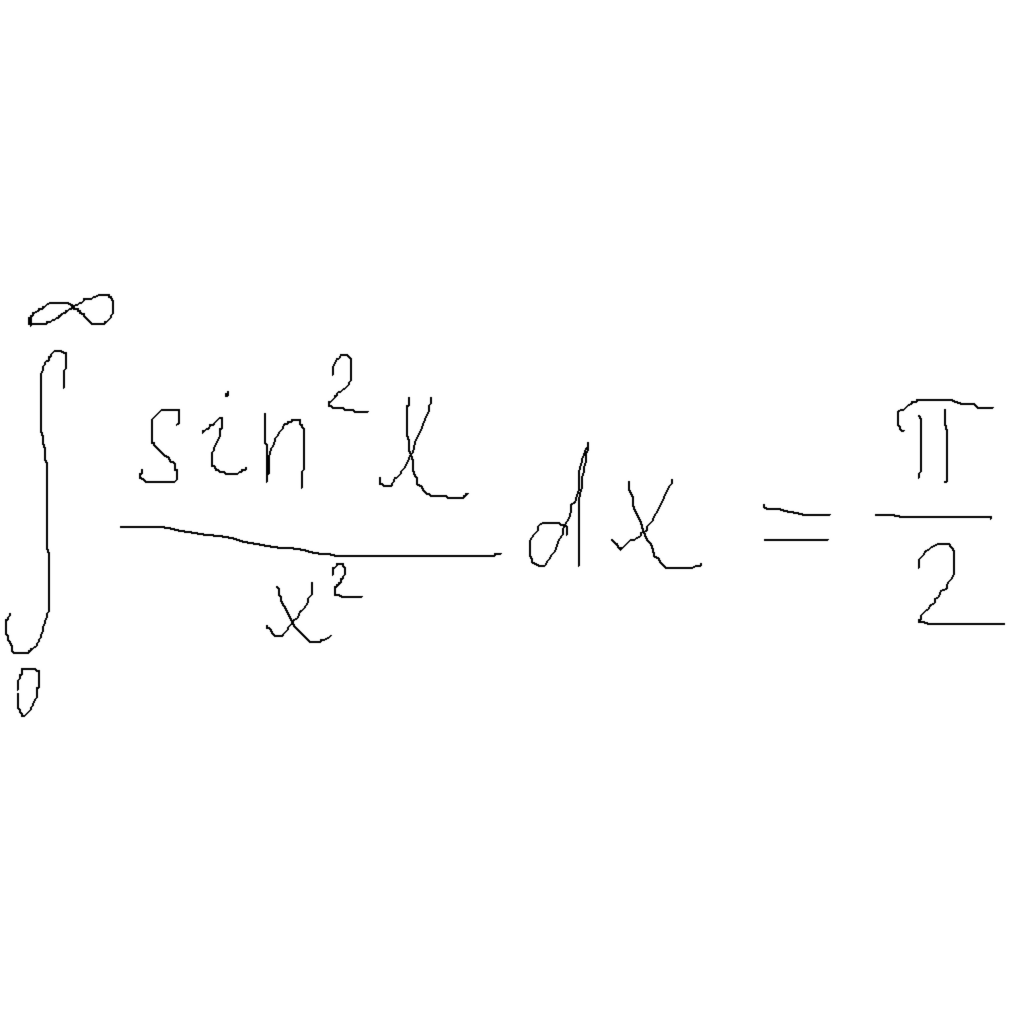 ∫₀^∞ sin²x / x² dx = π/2